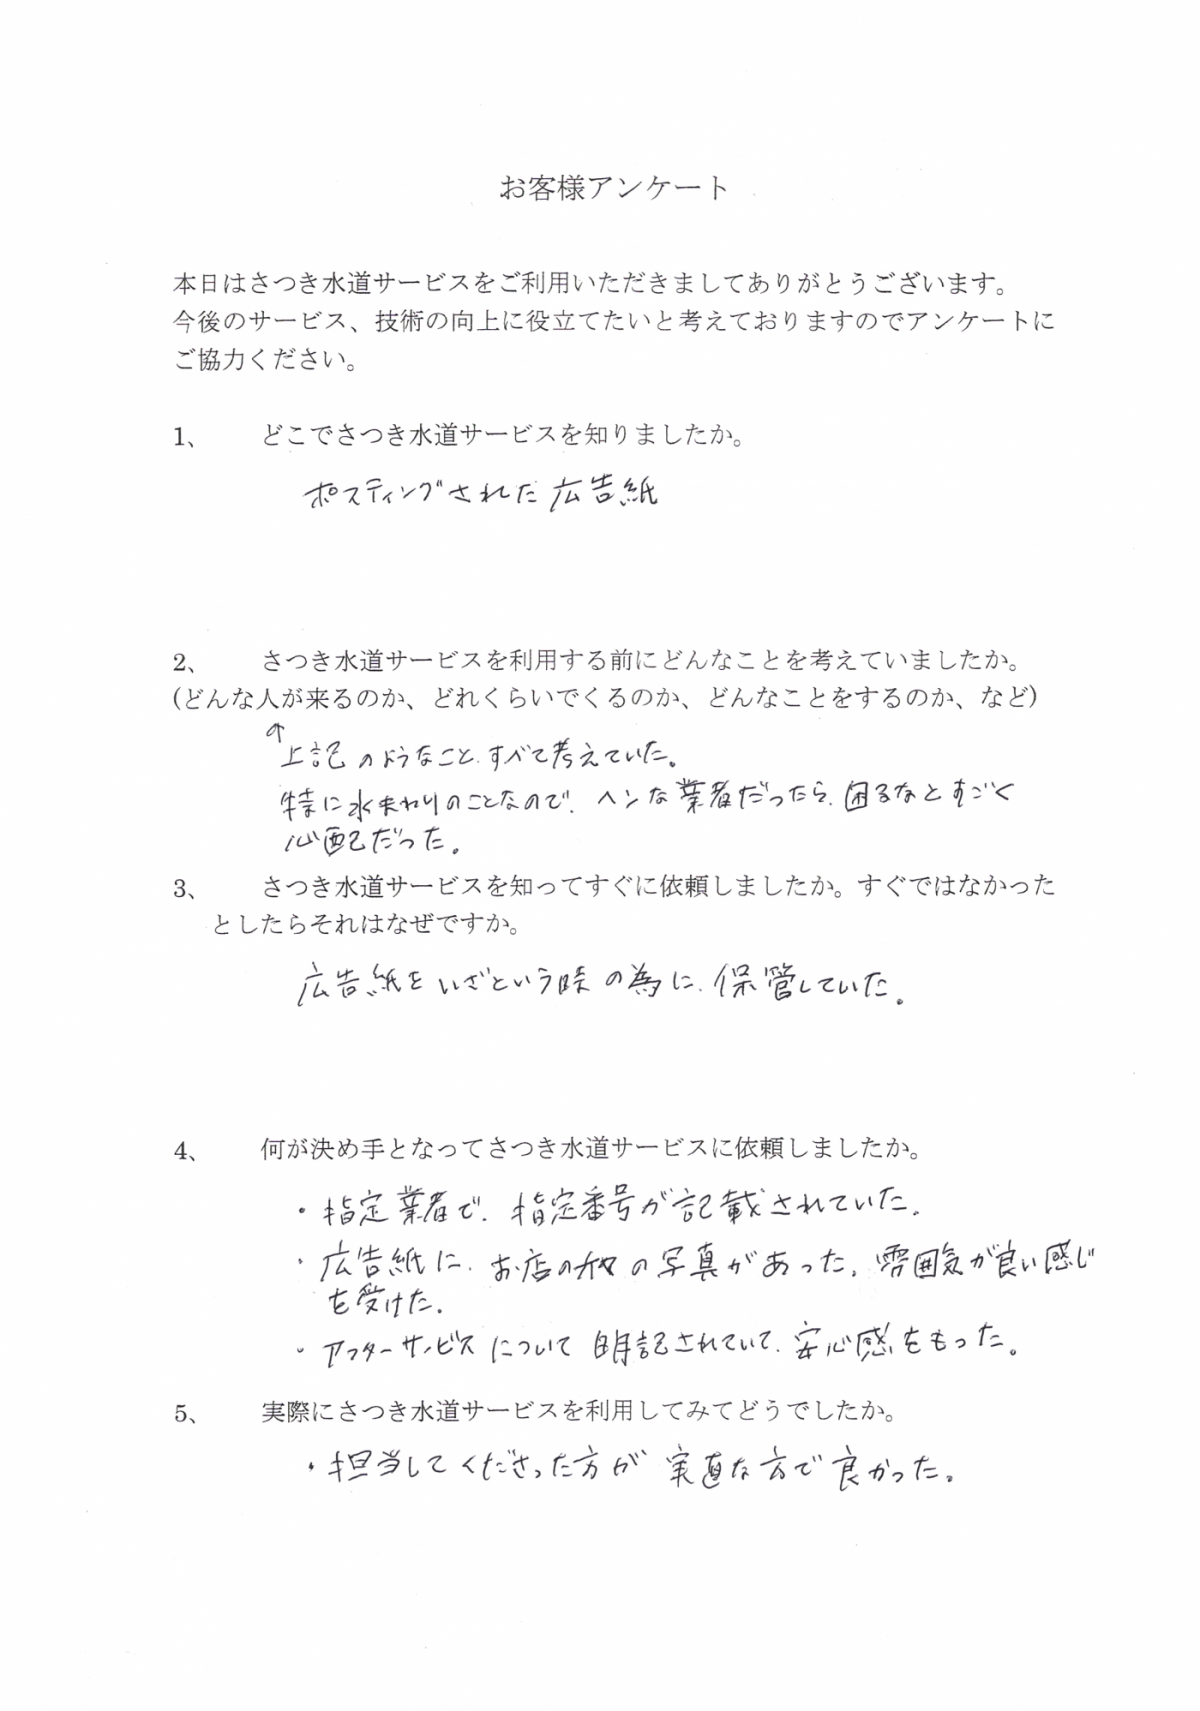 お客様アンケート
本日はさつき水道サービスをご利用いただきましてありがとうございます。
今後のサービス、技術の向上に役立てたいと考えておりますのでアンケートに
ご協力ください。
1、 どこでさつき水道サービスを知りましたか。
ポスティングされた広告紙
2、 さつき水道サービスを利用する前にどんなことを考えていましたか。
(どんな人が来るのか、どれくらいでくるのか、どんなことをするのか、など)
↑上記のようなこと、すべて考えていた。
特に水まわりのことなので、ヘンな業者だったら、困るなとすごく
心配だった。
3、 さつき水道サービスを知ってすぐに依頼しましたか。すぐではなかった
としたらそれはなぜですか。
広告紙をいざという時の為に、保管していた。
4、 何が決め手となってさつき水道サービスに依頼しましたか。
・指定業者で、指定番号が記載されていた。
・広告紙に、お店の方の写真があった。雰囲気が良い感じ
を受けた。
・アフターサービスについて明記されていて、安心感をもった。
5、 実際にさつき水道サービスを利用してみてどうでしたか。
・担当してくださった方が実直な方で良かった。